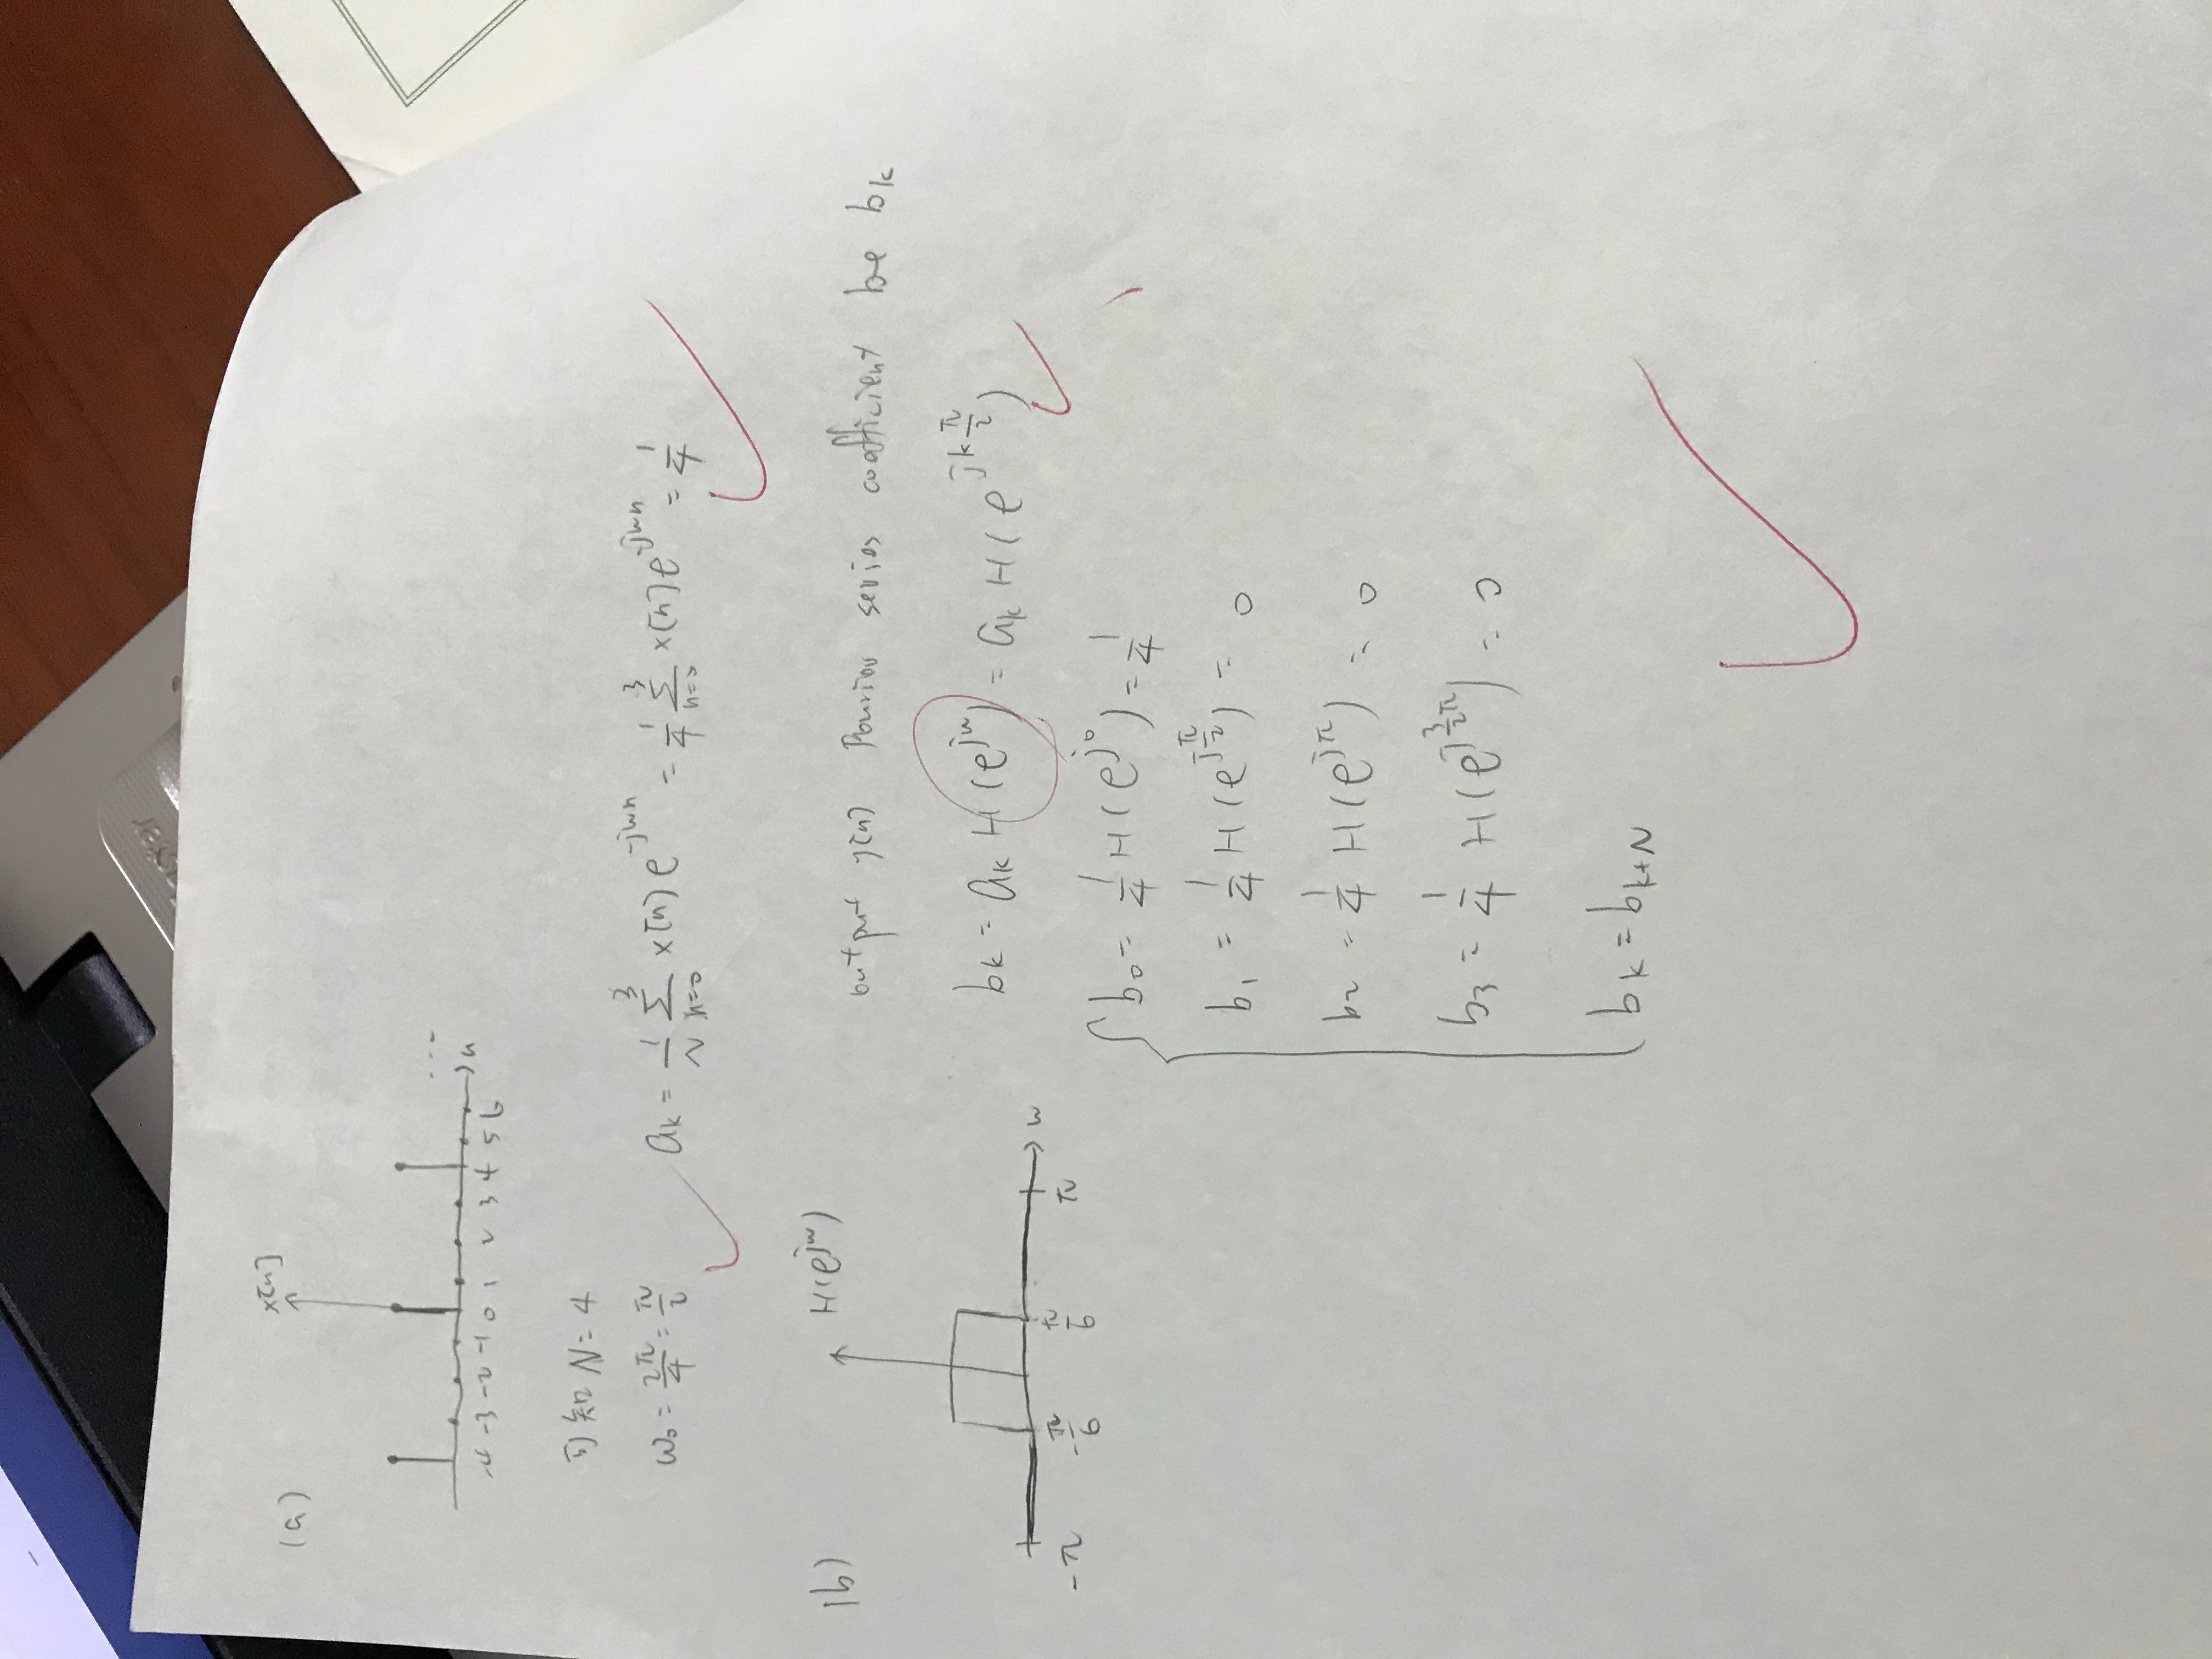 (a)
x[n]
...
-4 -3 -2 -1 0 1 2 3 4 5 6
n
可知 N = 4
ω₀ = 2π/4 = π/2
aₖ = 1/N Σ_{n=0}^{3} x[n] e^{-jωn} = 1/4 Σ_{n=0}^{3} x[n] e^{-jωn} = 1/4
(b)
H(e^{jω})
-π -π/6 π/6 π
ω
output y[n] Fourier series coefficient be bₖ
bₖ = aₖ H(e^{jω}) = aₖ H(e^{jkπ/2})
b₀ = 1/4 H(e^{j0}) = 1/4
b₁ = 1/4 H(e^{jπ/2}) = 0
b₂ = 1/4 H(e^{jπ}) = 0
b₃ = 1/4 H(e^{j3/2π}) = 0
bₖ = bₖ₊N